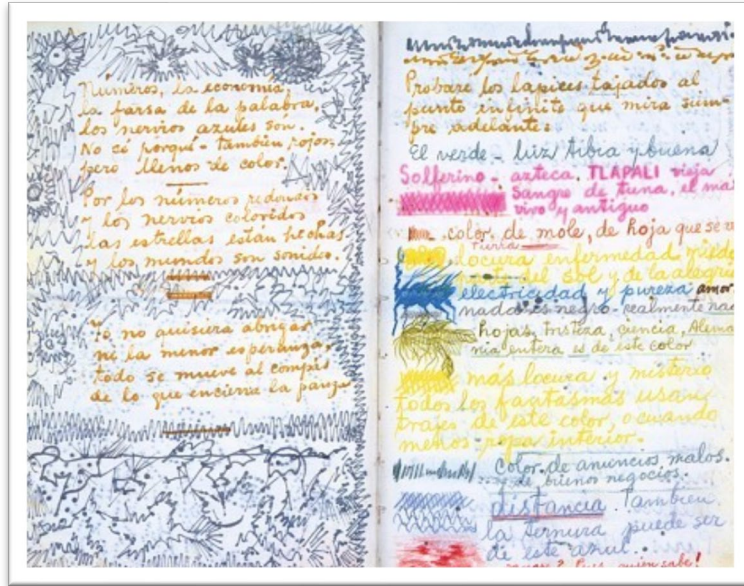 Números, la economía
la farsa de la palabra,
los nervios azules són.
No cé porqué - también rojos
pero llenos de color.
Por los números redondos
y los nervios coloridos
las estrellas están hechas
y los mundos son sonido.
Yo no quisiera abrigar
ni la menor esperanza,
todo se mueve al compás
de lo que encierra la panza
Probare los lapices tajados al
punto infinito que mira siem-
pre adelante:
El verde - luz tibia y buena
Solferino - azteca. TLAPALI vieja
Sangre de tuna, el más
vivo y antiguo
color de mole, de hoja que se va
tierra
locura enfermedad miedo
parte del sol y de la alegría
electricidad y pureza amor
nada es negro - realmente nada
hojas, tristeza, ciencia, Alema
nia entera es de este color
más locura y misterio
todos los fantasmas usan
trajes de este color, o cuando
menos ropa interior.
color de anuncios malos.
de buenos negocios.
distancia. Tambien
la ternura puede ser
de este azul.
Pues, quién sabe!